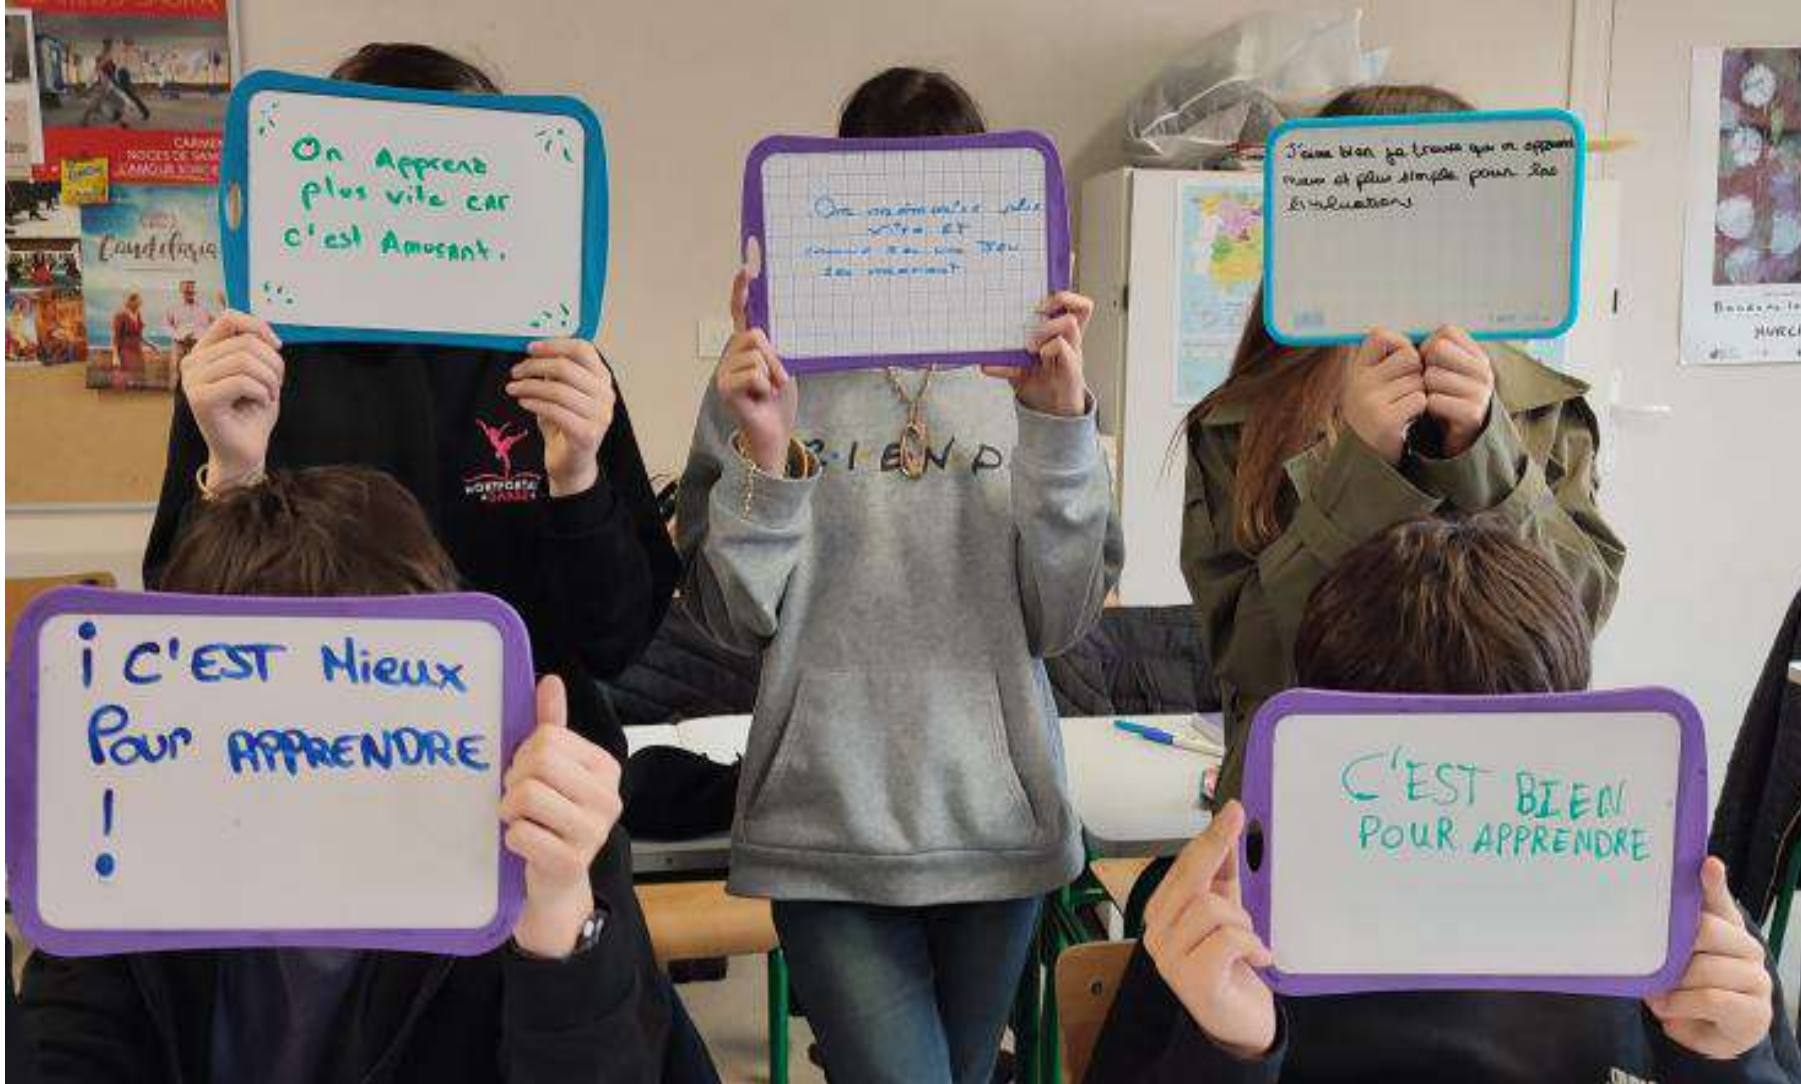 CARMEN
NOCES DE SANG
L'AMOUR SORCIER
Candelaria
On Apprend
plus vite car
c'est Amusant.
On mémorise plus
vite et
comme
J'aime bien je trouve qu'on apprend
mieux et plus simple pour les
évaluations
MONTPORTAIL
DANSE
R•I•E•N•D
MURCI
¡ C'EST Mieux
Pour APPRENDRE
!
C'EST BIEN
POUR APPRENDRE